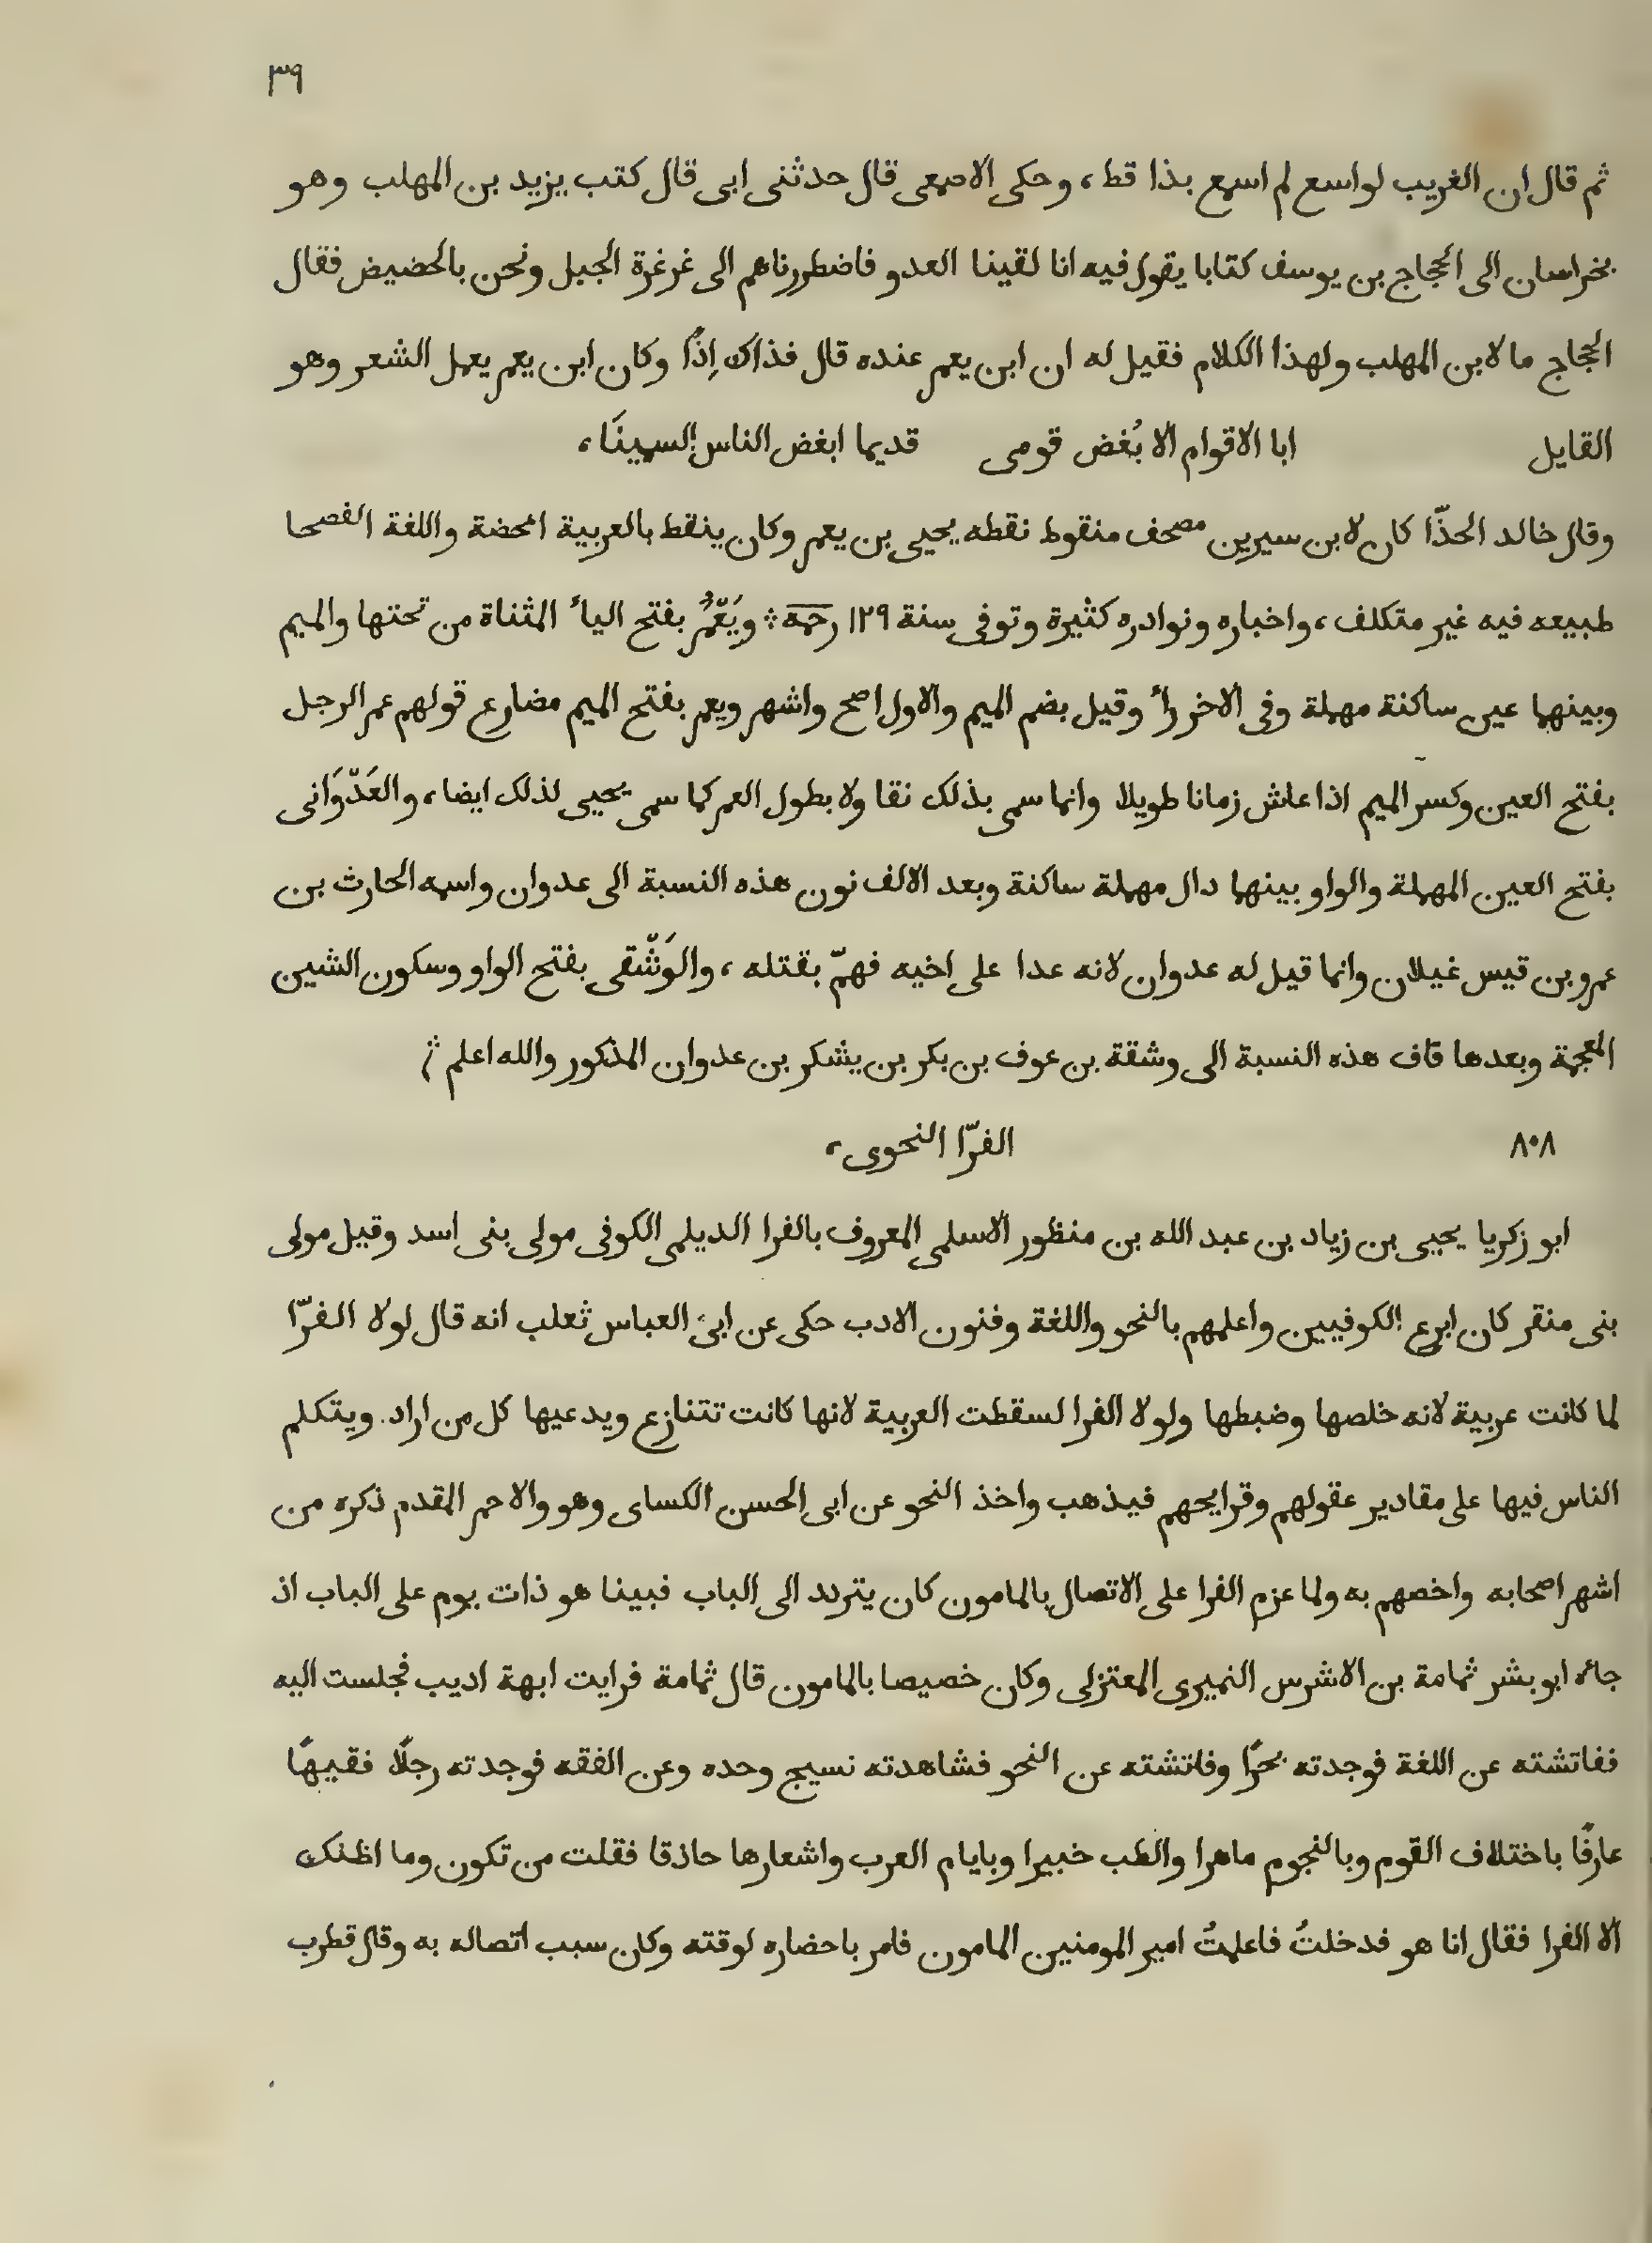 ٣٩
ثم قال ان الغريب لواسع لم اسمع بذا قط، وحكى الاصمعى قال حدثنى ابى قال كتب يزيد بن المهلب وهو
بخراسان الى الحجاج بن يوسف كتابا يقول فيه انا لقينا العدو فاضطررناهم الى غرغرة الجبل ونحن بالحضيض فقال
الحجاج ما لابن المهلب ولهذا الكلام فقيل له ان ابن يعمر عنده قال فذاك اِذًا وكان ابن يعمر يعمل الشعر وهو
القايل ابا الاقوام الا بُغض قومى قديما ابغض الناس السمينَا،
وقال خالد الحذّا كان لابن سيرين مصحف منقوط نقطه يحيى بن يعمر وكان ينقط بالعربية المحضة واللغة الفصحا
طبيعه فيه غير متكلف، واخباره ونوادره كثيرة وتوفى سنة ١٢٩ رحمه ويَعْمَرُ بفتح الياء المثناة من تحتها والميم
وبينهما عين ساكنة مهملة وفى الاخر راء وقيل بضم الميم والاول اصح واشهر ويعمر بفتح الميم مضارع قولهم عمر الرجل
بفتح العين وكسر الميم اذا عاش زمانا طويلا وانما سمى بذلك تفا ولا بطول العمر كما سمى يحيى لذلك ايضا، والعَدْوَانى
بفتح العين المهملة والواو بينهما دال مهملة ساكنة وبعد الالف نون هذه النسبة الى عدوان واسمه الحارث بن
عمرو بن قيس غيلان وانما قيل له عدوان لانه عدا على اخيه فهمّ بقتله، والوَشْقى بفتح الواو وسكون الشين
المعجمة وبعدها قاف هذه النسبة الى وشقة بن عوف بن بكر بن يشكر بن عدوان المذكور والله اعلم
٨٠٨ الفرّا النحوى،
ابو زكريا يحيى بن زياد بن عبد الله بن منظور الاسلمى المعروف بالفرا الديلمى الكوفى مولى بنى اسد وقيل مولى
بنى منقر كان ابرع الكوفيين واعلمهم بالنحو واللغة وفنون الادب حكى عن ابى العباس ثعلب انه قال لولا الفرّا
لما كانت عربية لانه خلصها وضبطها ولولا الفرا لسقطت العربية لانها كانت تتنازع ويدعيها كل من اراد. ويتكلم
الناس فيها على مقادير عقولهم وقرايحهم فيذهب واخذ النحو عن ابى الحسن الكساى وهو والاحمر المقدم ذكره من
اشهر اصحابه واخصهم به ولما عزم الفرا على الاتصال بالمامون كان يتردد الى الباب فبينا هو ذات يوم على الباب اذ
جاءه ابو بشر ثمامة بن الاشرس النميرى المعتزلى وكان خصيصا بالمامون قال ثمامة فرايت ابهة اديب فجلست اليه
ففاتشته عن اللغة فوجدته بحرًا وفاتشته عن النحو فشاهدته نسيج وحده وعن الفقه فوجدته رجلًا فقيهًا
عارفًا باختلاف القوم وبالنجوم ماهرا والطب خبيرا وبايام العرب واشعارها حاذقا فقلت من تكون وما اظنك
الا الفرا فقال انا هو فدخلتُ فاعلمتُ امير المومنين المامون فامر باحضاره لوقته وكان سبب اتصاله به وقال قطرب